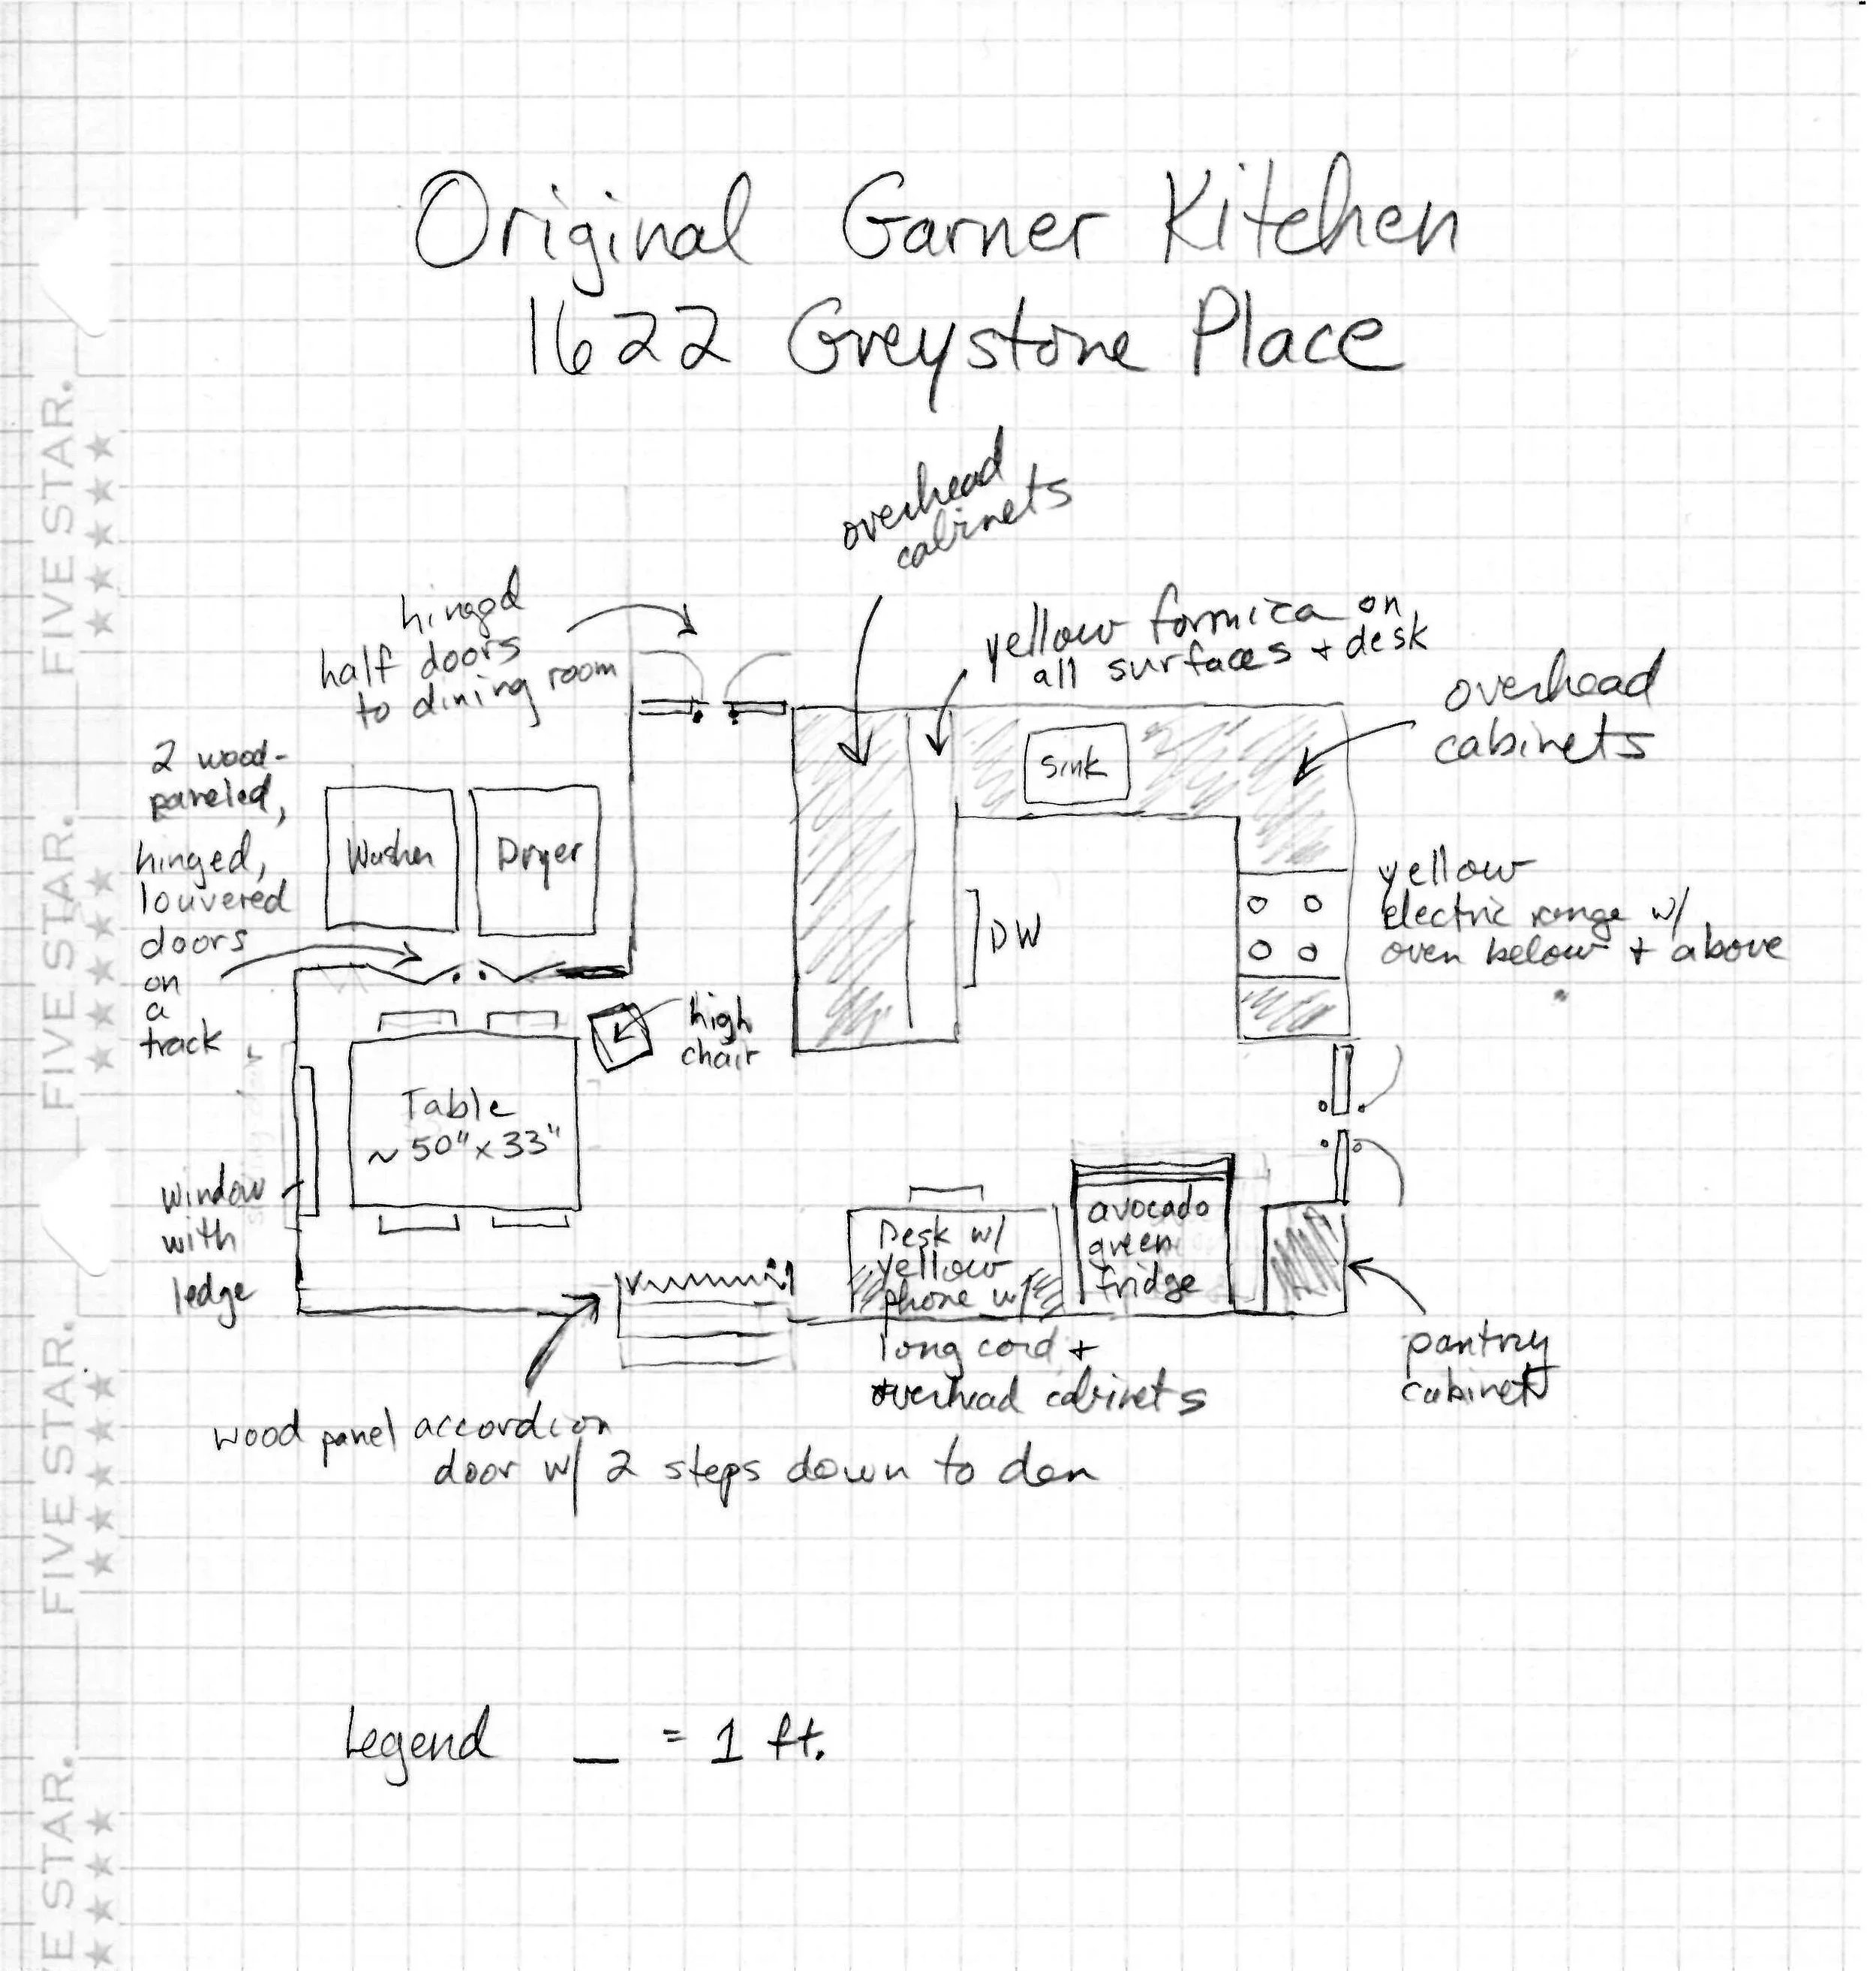 Original Garner Kitchen
1622 Greystone Place
overhead
cabinets
hinged
half doors
to dining room
yellow formica on
all surfaces + desk
overhead
cabinets
2 wood-
paneled,
hinged,
louvered
doors
on
a
track
Washer
Dryer
Sink
DW
yellow
electric range w/
oven below + above
high
chair
Table
~50"x33"
window
with
ledge
Desk w/
yellow
phone w/
long cord +
overhead cabinets
avocado
green
fridge
pantry
cabinet
wood panel accordion
door w/ 2 steps down to den
Legend _ = 1 ft.
FIVE STAR.
FIVE STAR.
FIVE STAR.
VE STAR.